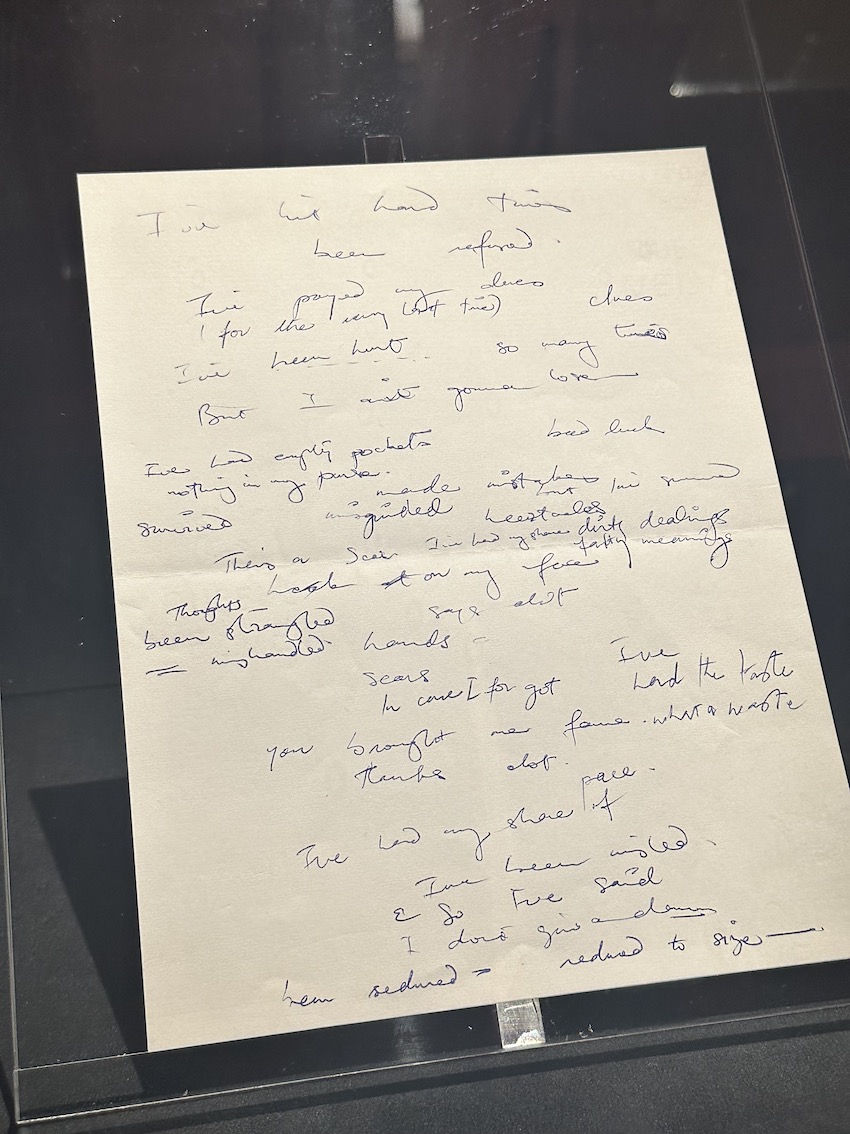 I've hit hard times
been refused.
I've payed my dues clues
(for the very last time)
I've been hurt so many times
But I ain't gonna lose
I've had empty pockets bad luck
nothing in my purse.
made mistakes but I've survived
survived misguided
There's a Scar I've had my share dirty dealings
Thoughts on my face meanings
been strangled says alot
mishandled hands -
scars I've
In case I forgot had the taste
you brought me fame. what a waste
thanks alot.
pace.
I've had my share of
I've been misled.
& So I've said
I don't give a damn
been seduced = reduced to size —